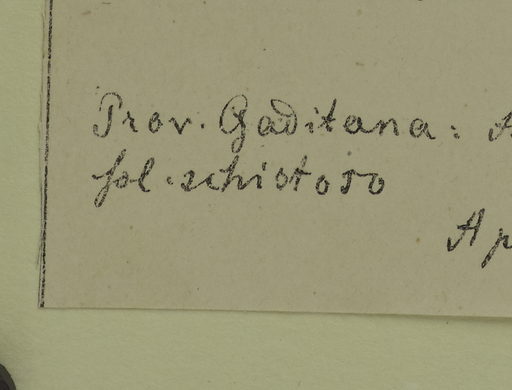 Prov. Gaditana:
sol. schistoso
Ap